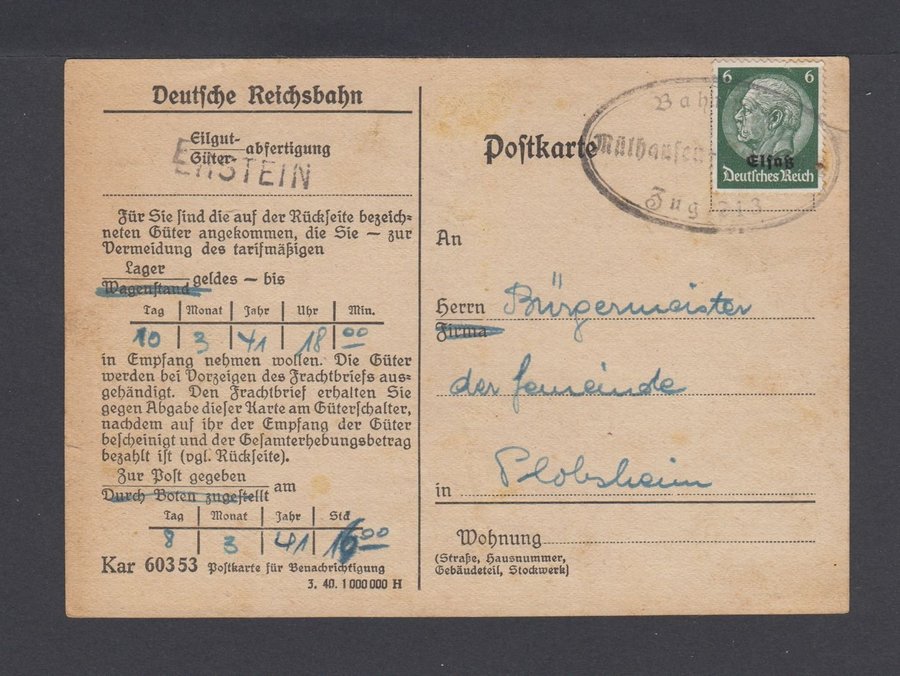 Deutsche Reichsbahn
Eilgut-
Güter- abfertigung
ERSTEIN
Für Sie sind die auf der Rückseite bezeich-
neten Güter angekommen, die Sie – zur
Vermeidung des tarifmäßigen
Lager
Wagenstand geldes – bis
Tag Monat Jahr Uhr Min.
10 3 41 18 00
in Empfang nehmen wollen. Die Güter
werden bei Vorzeigen des Frachtbriefs aus-
gehändigt. Den Frachtbrief erhalten Sie
gegen Abgabe dieser Karte am Güterschalter,
nachdem auf ihr der Empfang der Güter
bescheinigt und der Gesamterhebungsbetrag
bezahlt ist (vgl. Rückseite).
Zur Post gegeben
Durch Boten zugestellt am
Tag Monat Jahr Std
8 3 41 16 00
Kar 60353 Postkarte für Benachrichtigung
3. 40. 1 000 000 H
Postkarte
Bah
Mülhausen
Zug 213
6 6
Elsaß
Deutsches Reich
An
Herrn Bürgermeister
Firma
der Gemeinde
in Plobsheim
Wohnung
(Straße, Hausnummer,
Gebäudeteil, Stockwerk)